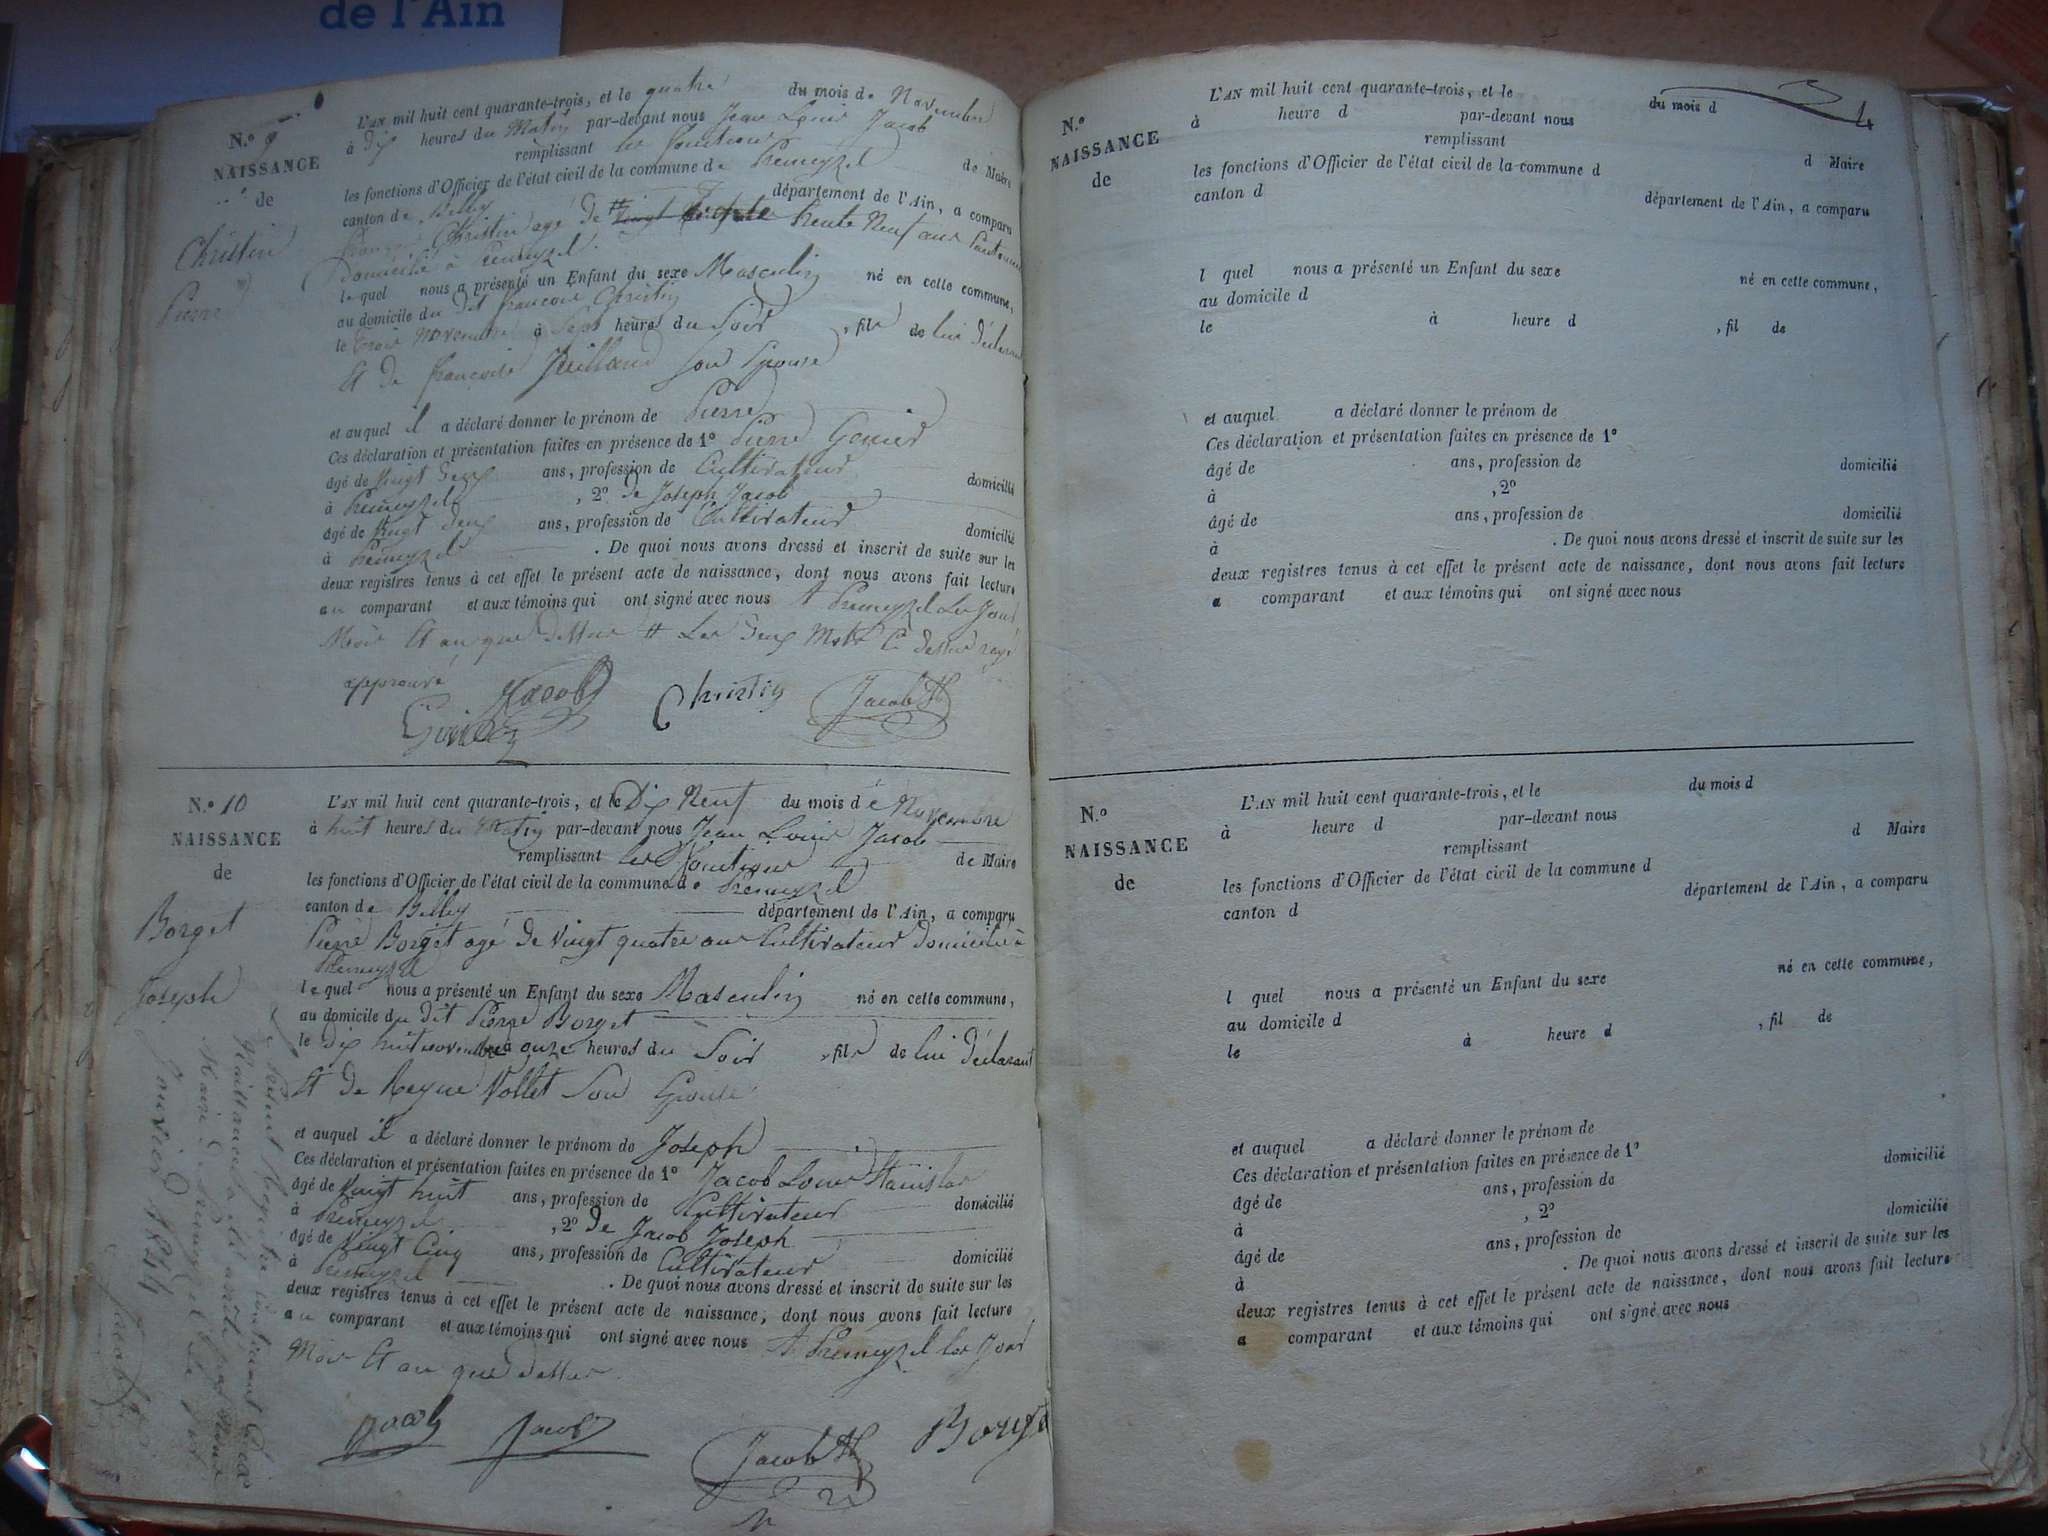 de l'Ain
N.º 9
NAISSANCE
de
Christin
Pierre
L'AN mil huit cent quarante-trois, et le quatre du mois de Novembre
à Dix heures du Matin par-devant nous Jean Louis Jacob
remplissant les fonctions de Maire
les fonctions d'Officier de l'état civil de la commune de Premeyzel
canton de Belley département de l'Ain, a comparu
françois Christin agé de trente Neuf ans
Domicilié à Premeyzel
le quel nous a présenté un Enfant du sexe Masculin né en cette commune,
au domicile du dit françois Christin
le trois Novembre à Sept heures du Soir, fils de lui déclarant
Et de françoise Juilland son Epouse
et auquel il a déclaré donner le prénom de Pierre
Ces déclaration et présentation faites en présence de 1º Pierre
âgé de Vingt Deux ans, profession de Cultivateur domicilié
à Premeyzel, 2º de Joseph Jacob
âgé de Vingt deux ans, profession de Cultivateur domicilié
à Premeyzel. De quoi nous avons dressé et inscrit de suite sur les
deux registres tenus à cet effet le présent acte de naissance, dont nous avons fait lecture
au comparant et aux témoins qui ont signé avec nous A Premeyzel Les Jour
Mois Et an que Dessus # Les Deux Mots Ci dessus rayé
approuvé
Jacob Christin Jacob
N.º 10
NAISSANCE
de
Borget
Joseph
L'AN mil huit cent quarante-trois, et le Dix Neuf du mois dé Novembre
à huit heures du Matin par-devant nous Jean Louis Jacob
remplissant les fonctions de Maire
les fonctions d'Officier de l'état civil de la commune de Premeyzel
canton de Belley département de l'Ain, a comparu
Pierre Borget agé de Vingt quatre ans Cultivateur Domicilié à
Premeyzel
le quel nous a présenté un Enfant du sexe Masculin né en cette commune,
au domicile du dit Pierre Borget
le Dix huit novembre à onze heures du Soir, fils de lui déclarant
Et de Reyne Vollet Son Epouse
et auquel il a déclaré donner le prénom de Joseph
Ces déclaration et présentation faites en présence de 1º Jacob Louis Stanislas
âgé de Vingt huit ans, profession de Cultivateur domicilié
à Premeyzel, 2º de Jacob Joseph
âgé de Vingt Cinq ans, profession de Cultivateur domicilié
à Premeyzel. De quoi nous avons dressé et inscrit de suite sur les
deux registres tenus à cet effet le présent acte de naissance, dont nous avons fait lecture
au comparant et aux témoins qui ont signé avec nous A Premeyzel les Jour
Mois Et an que Dessus
Jacob Jacob Jacob Borget
Le présent Registre contenant Dix
Naissances a été arrêté par Nous
Maire de Premeyzel
Janvier 1844
Jacob
4
N.º
NAISSANCE
de
L'AN mil huit cent quarante-trois, et le du mois d
à heure d par-devant nous
remplissant d Maire
les fonctions d'Officier de l'état civil de la commune d
canton d département de l'Ain, a comparu
l quel nous a présenté un Enfant du sexe né en cette commune,
au domicile d
le à heure d, fil de
et auquel a déclaré donner le prénom de
Ces déclaration et présentation faites en présence de 1º
âgé de ans, profession de domicilié
à, 2º
âgé de ans, profession de domicilié
à. De quoi nous avons dressé et inscrit de suite sur les
deux registres tenus à cet effet le présent acte de naissance, dont nous avons fait lecture
a comparant et aux témoins qui ont signé avec nous
N.º
NAISSANCE
de
L'AN mil huit cent quarante-trois, et le du mois d
à heure d par-devant nous
remplissant d Maire
les fonctions d'Officier de l'état civil de la commune d
canton d département de l'Ain, a comparu
l quel nous a présenté un Enfant du sexe né en cette commune,
au domicile d
le à heure d, fil de
et auquel a déclaré donner le prénom de
Ces déclaration et présentation faites en présence de 1º
âgé de ans, profession de domicilié
à, 2º
âgé de ans, profession de domicilié
à. De quoi nous avons dressé et inscrit de suite sur les
deux registres tenus à cet effet le présent acte de naissance, dont nous avons fait lecture
a comparant et aux témoins qui ont signé avec nous